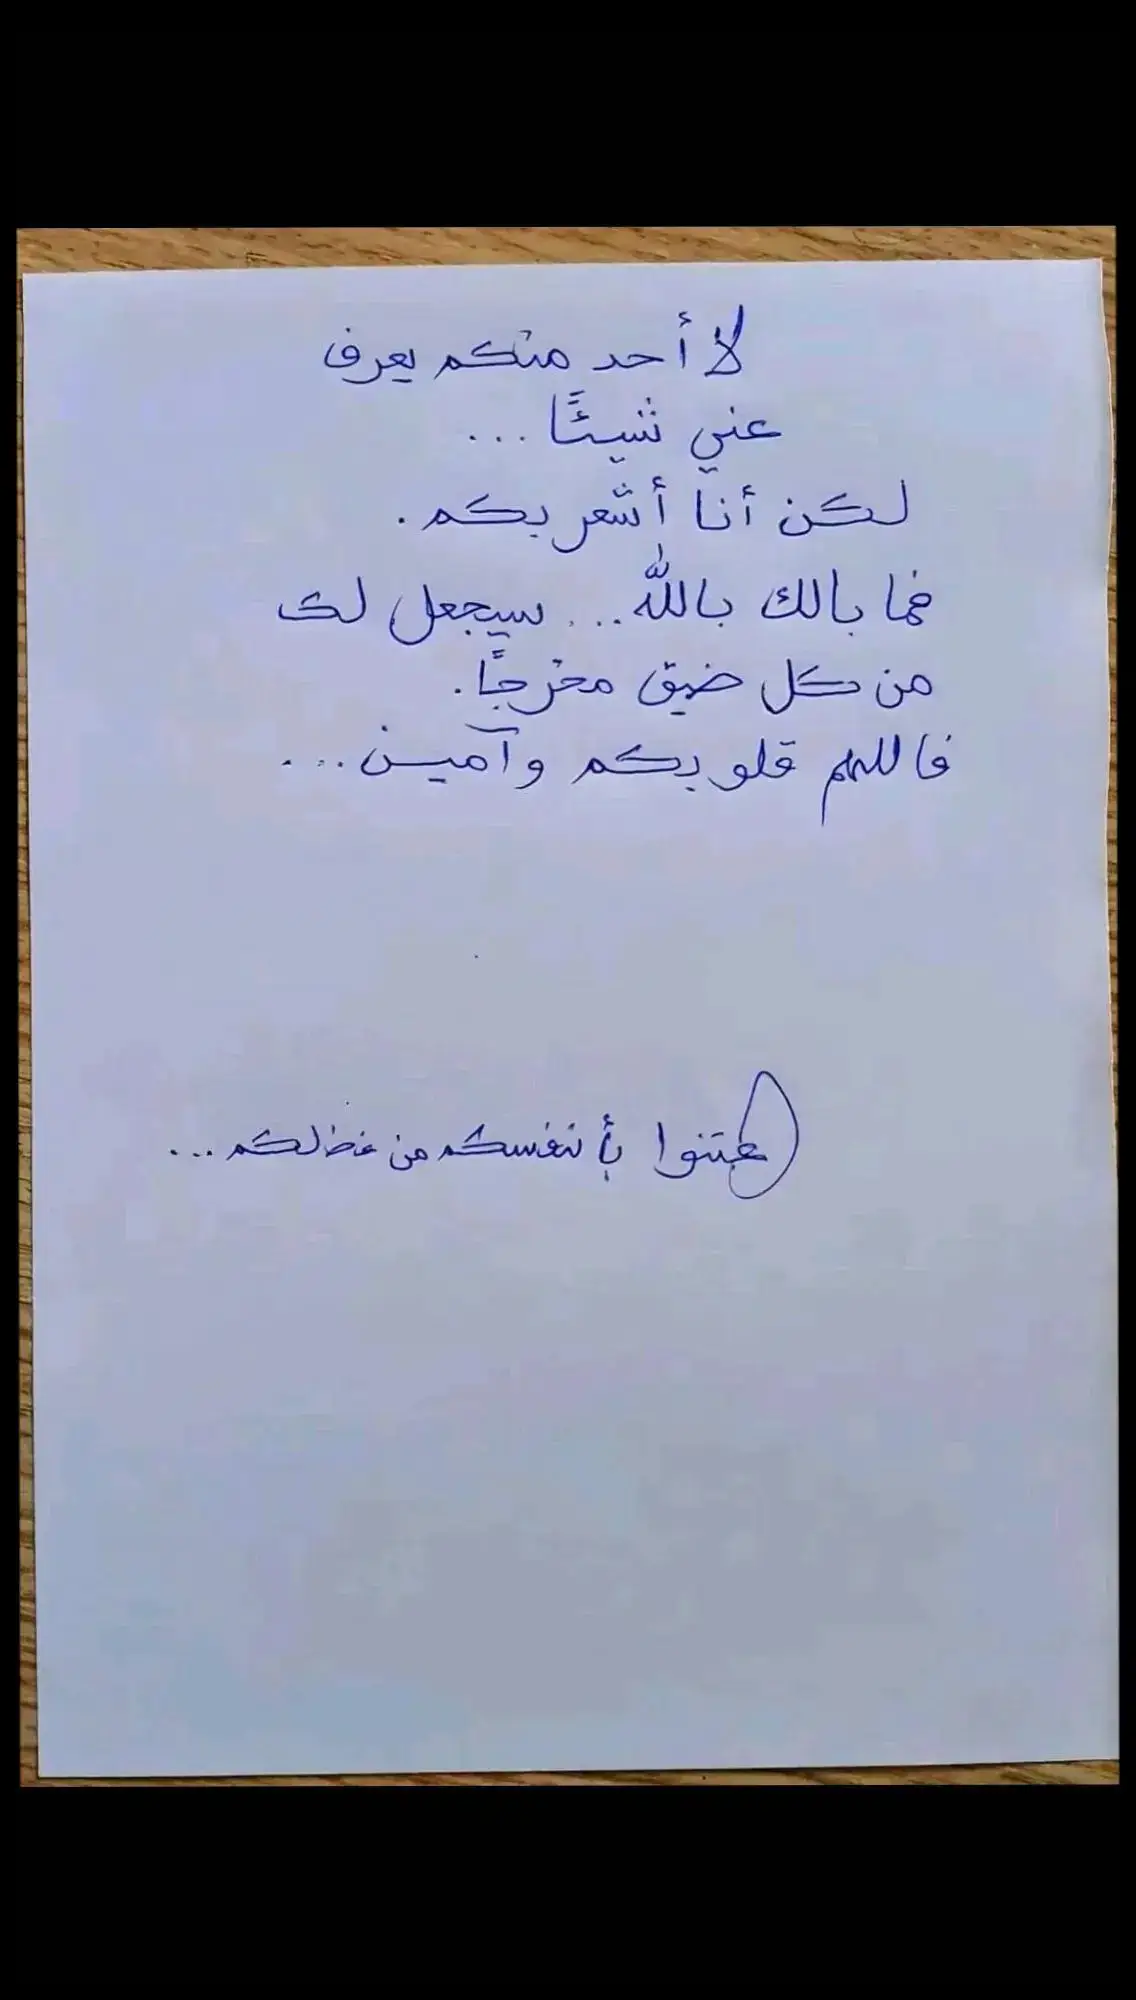 لا أحد منكم يعرف
عني شيئًا...
لكن أنا أشعر بكم.
فما بالك بالله... سيجعل لك
من كل ضيق مخرجًا.
فاللهم قلوبكم وآمين...
اعتنوا بأنفسكم من فضلكم...